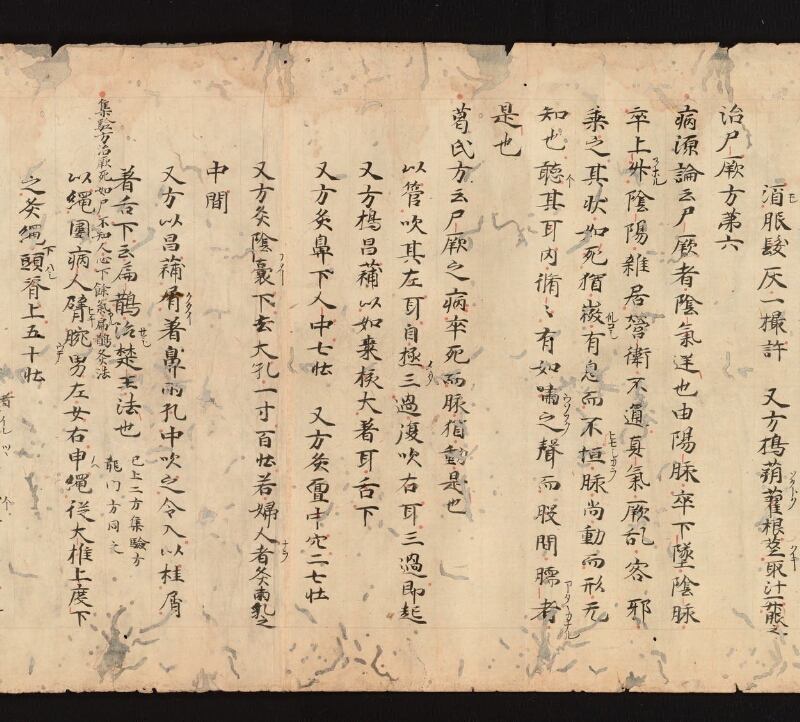 酒服髮灰一撮許 又方搗葫蘿根莖取汁一升服之
治尸厥方第六
病源論云尸厥者陰氣逆也由陽脉卒下墜陰脉
卒上升陰陽離居營衛不通真氣厥乱客邪
乘之其狀如死猶微有息而不恒脉尚動而形无
知也聽其耳内循〻有如嘯之聲而股間臑者
是也
葛氏方云尸厥之病卒死而脉猶動是也
以管吹其左耳自極三過復吹右耳三過即起
又方搗昌蒲以如棗核大著耳舌下
又方灸鼻下人中七壮 又方灸亶中穴二七壮
又方灸陰囊下玄大孔一寸百壮若婦人者灸兩乳之
中間
又方以昌蒲屑著鼻兩孔中吹之令入以桂屑
著舌下云扁鵲治楚王法也 已上二方集驗方
龍门方同之
集驗方治厥死如尸不知人心下餘氣扁鵲灸法
以繩圍病人臂腕男左女右申繩從大椎上度下
之灸繩頭脊上五十壮